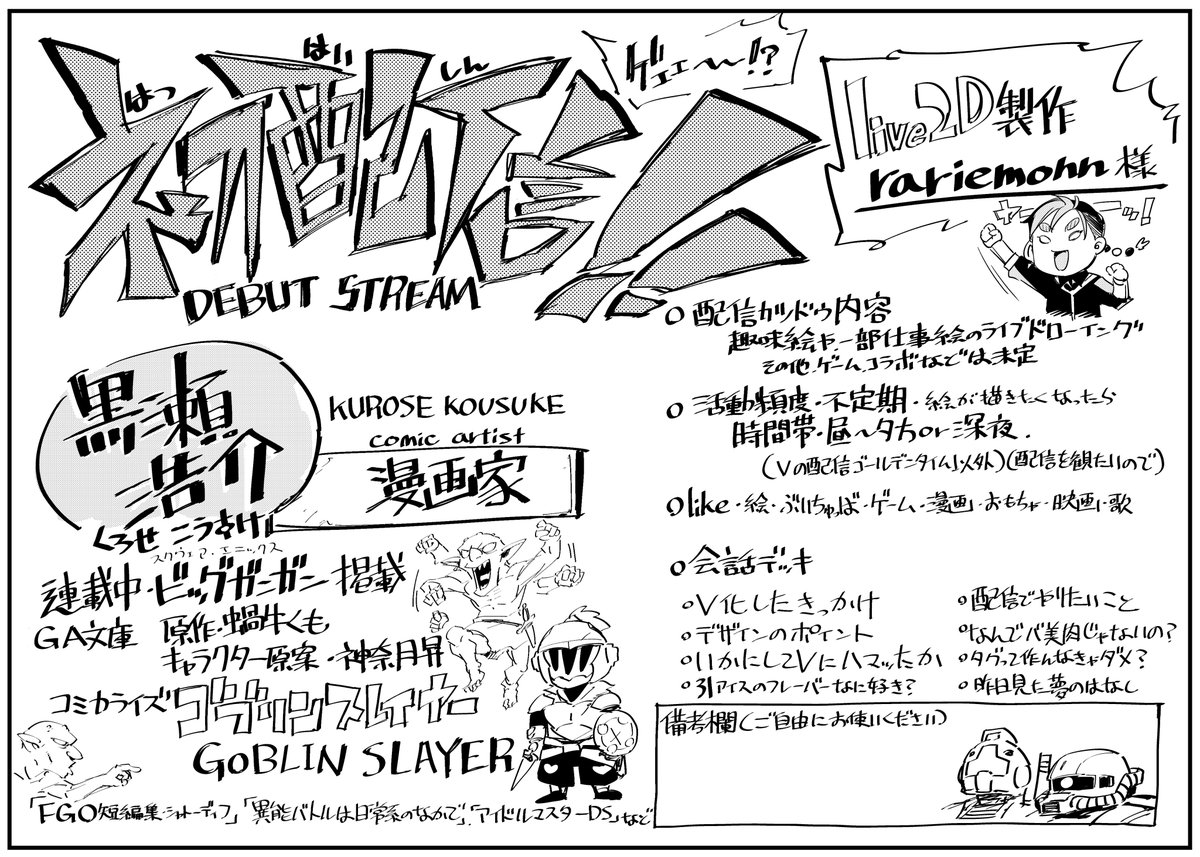 はつ はい しん
初配信!!
ゲェェ〜〜!?
DEBUT STREAM
live2D製作
rariemohn様
ヤーーッ!
黒瀬
浩介
くろせ こうすけ
KUROSE KOUSUKE
comic artist
漫画家
スクウェア・エニックス
連載中・ビッグガンガン掲載
GA文庫 原作・蝸牛くも
キャラクター原案・神奈月昇
コミカライズ ゴブリンスレイヤー
GOBLIN SLAYER
「FGO短編集・シャトーディフ」「異能バトルは日常系のなかで」.「アイドルマスターDS」など
○配信カツドウ内容
趣味絵や、一部仕事絵のライブドローイング
その他、ゲーム、コラボなどは未定
○活動頻度・不定期・絵が描きたくなったら
時間帯・昼〜夕方or深夜.
(Vの配信ゴールデンタイム以外)(配信を観たいので)
○like・絵・ぶいちゅば・ゲーム・漫画・おもちゃ・映画・歌
○会話デッキ
○V化したきっかけ
○デザインのポイント
○いかにしてVにハマッたか
○31アイスのフレーバーなに好き?
○配信でやりたいこと
○なんでバ美肉じゃないの?
○タグって作んなきゃダメ?
○昨日見た夢のはなし
備考欄(ご自由にお使いください)